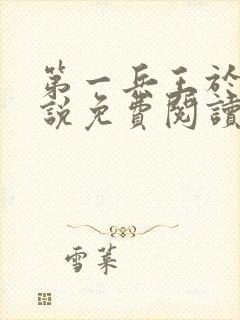 第一兵王於
說免費閱讀
雪葉